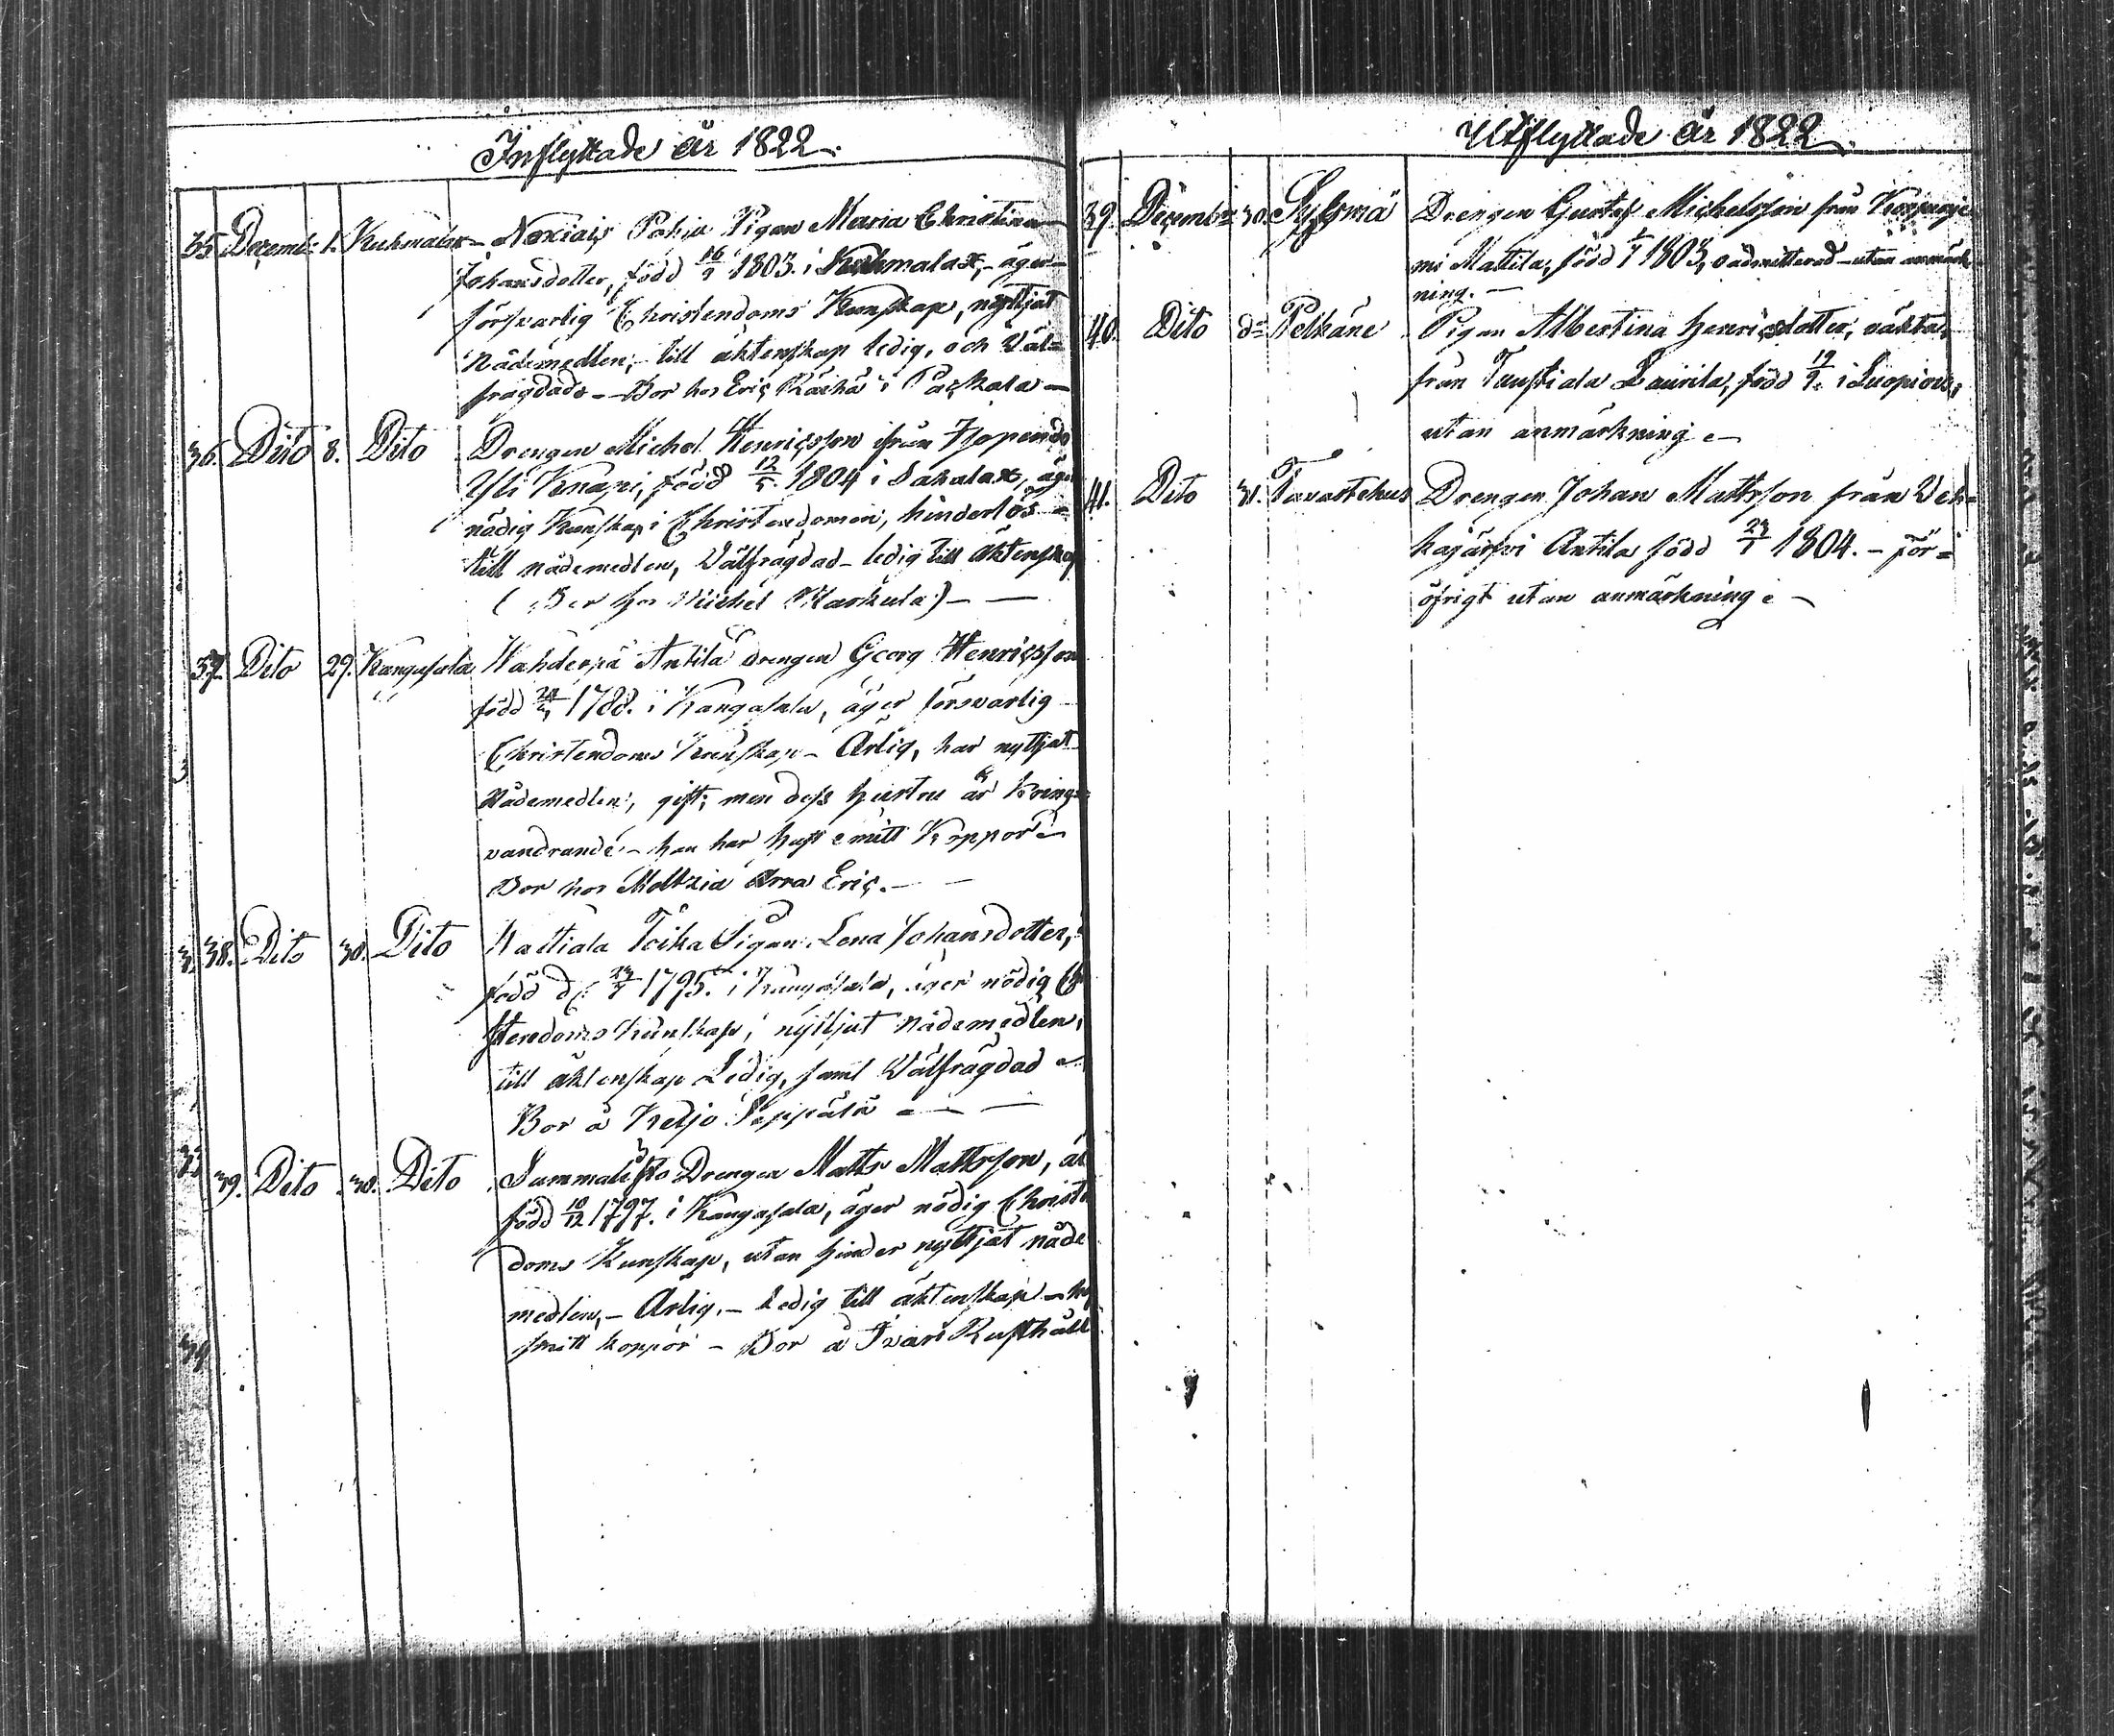 Inflyttade år 1822.
35. Decemb: 1. Kuhmalax - Noxiais Pohja Pigan Maria Christina
Johansdotter, född 16/9 1803. i Kuhmalax, - äger
försvarlig Christendoms Kunskap, nyttjat
Nådemedlen, till äktenskap ledig, och Väl=
frägdad - Bor hos Eric Kärhä i
36. Dito 8. Dito Drengen Michel Henricsson ifrån
Yli Knapi, född 12/5 1804 i Sahalax, äger
nödig Kunskap i Christendomen, hinderlös
till nådemedlen, Välfrägdad - ledig till äktenskap
(Bor hos Michel Markula) -
37. Dito 29. Kangasala Antila drengen Georg Henricsson
född 1788. i Kangasala, äger försvarlig
Christendoms Kunskap - Ärlig, har nyttjat
Nådemedlen, gift; men dess hustru är kring=
vandrande - han har haft Koppor
Bor hos Moltzia Arra Eric. -
38. Dito 30. Dito Hattiala Toika Pigan Lena Johansdotter,
född d. 1795. i Kangasala, äger nödig Chr
stendoms Kunskap, nyttjat Nådemedlen,
till äktenskap Ledig, samt Välfrägdad
Bor å Keljo Seppälä -
39. Dito 30. Dito Drengen Matts Mattsson, är
född 18/12 1797. i Kangasala, äger nödig Christen
doms Kunskap, utan hinder nyttjat nåde
medlen, - Ärlig. - Ledig till äktenskap -
koppor - Bor å Rusthåll
Utflyttade år 1822.
39. Decembr 30. Sysmä Drengen Gustaf Michelsson från
mi Mattila, född 1803, oadmitterad - utan anmärk
ning. -
40. Dito do Pelkäne Pigan Albertina Henricsdotter,
från Laurila, född 19/9. i Luopiois,
utan anmärkning -
41. Dito 31. Tavastehus Drengen Johan Mattsson från Veh=
kajärfvi Antila född 1804. - för=
öfrigt utan anmärkning -